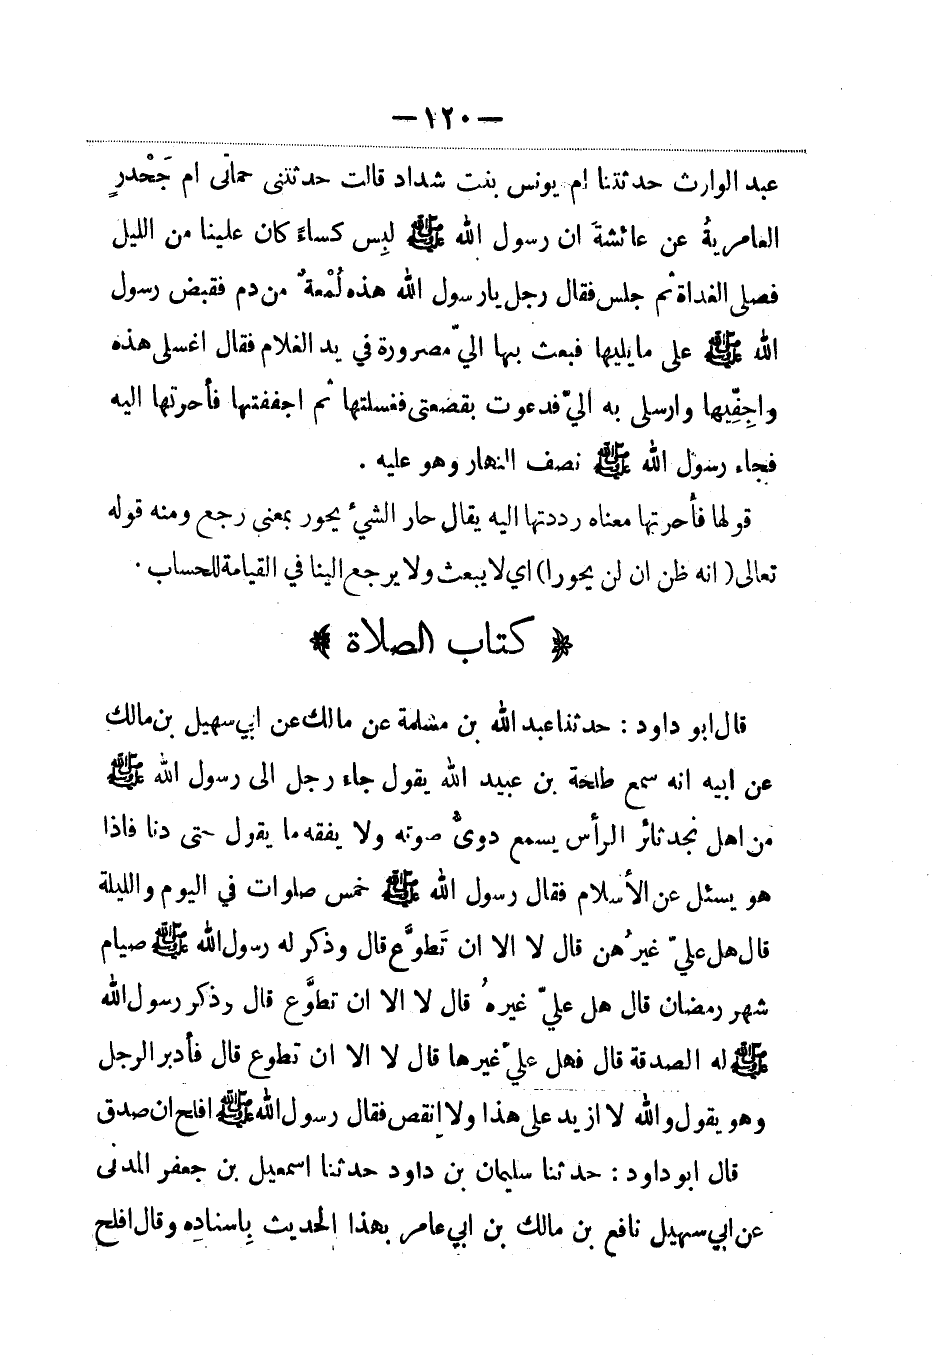 — ١٢٠ —
عبد الوارث حدثتنا ام يونس بنت شداد قالت حدثتنى حماتى ام جَحْدرٍ
العامريةُ عن عائشةَ ان رسول الله ﷺ لبِس كساءً كان علينا من الليل
فصلى الغداة ثم جلس فقال رجل يارسول الله هذه لُمْعةٌ من دم فقبض رسول
الله ﷺ على مايليها فبعث بها اليّ مصرورة في يد الغلام فقال اغسلى هذه
واجِفِّيها وارسلى به اليّ فدعوت بقصعتى فغسلتها ثم اجففتها فأحرتها اليه
فجاء رسول الله ﷺ نصف النهار وهو عليه .
قولها فأحرتها معناه رددتها اليه يقال حار الشيء يحور بمعنى رجع ومنه قوله
تعالى ( انه ظن ان لن يحورا) اي لا يبعث ولا يرجع الينا في القيامة للحساب .
﴿ كتاب الصلاة ﴾
قال ابو داود : حدثنا عبد الله بن مسلمة عن مالك عن ابي سهيل بن مالك
عن ابيه انه سمع طلحة بن عبيد الله يقول جاء رجل الى رسول الله ﷺ
من اهل نجد ثائر الرأس يسمع دوىُّ صوته ولا يفقه ما يقول حتى دنا فاذا
هو يسئل عن الأسلام فقال رسول الله ﷺ خمس صلوات في اليوم والليلة
قال هل عليّ غيرُهن قال لا الا ان تَطوَّع قال وذكر له رسول الله ﷺ صيام
شهر رمضان قال هل عليّ غيرهُ قال لا الا ان تطوَّع قال وذكر رسول الله
ﷺ له الصدقة قال فهل عليّ غيرها قال لا الا ان تطوع قال فأدبر الرجل
وهو يقول والله لا ازيد على هذا ولا انقص فقال رسول الله ﷺ افلح ان صدق
قال ابو داود : حدثنا سليمان بن داود حدثنا اسمعيل بن جعفر المدنى
عن ابي سهيل نافع بن مالك بن ابي عامر بهذا الحديث بِاسنادِه وقال افلح